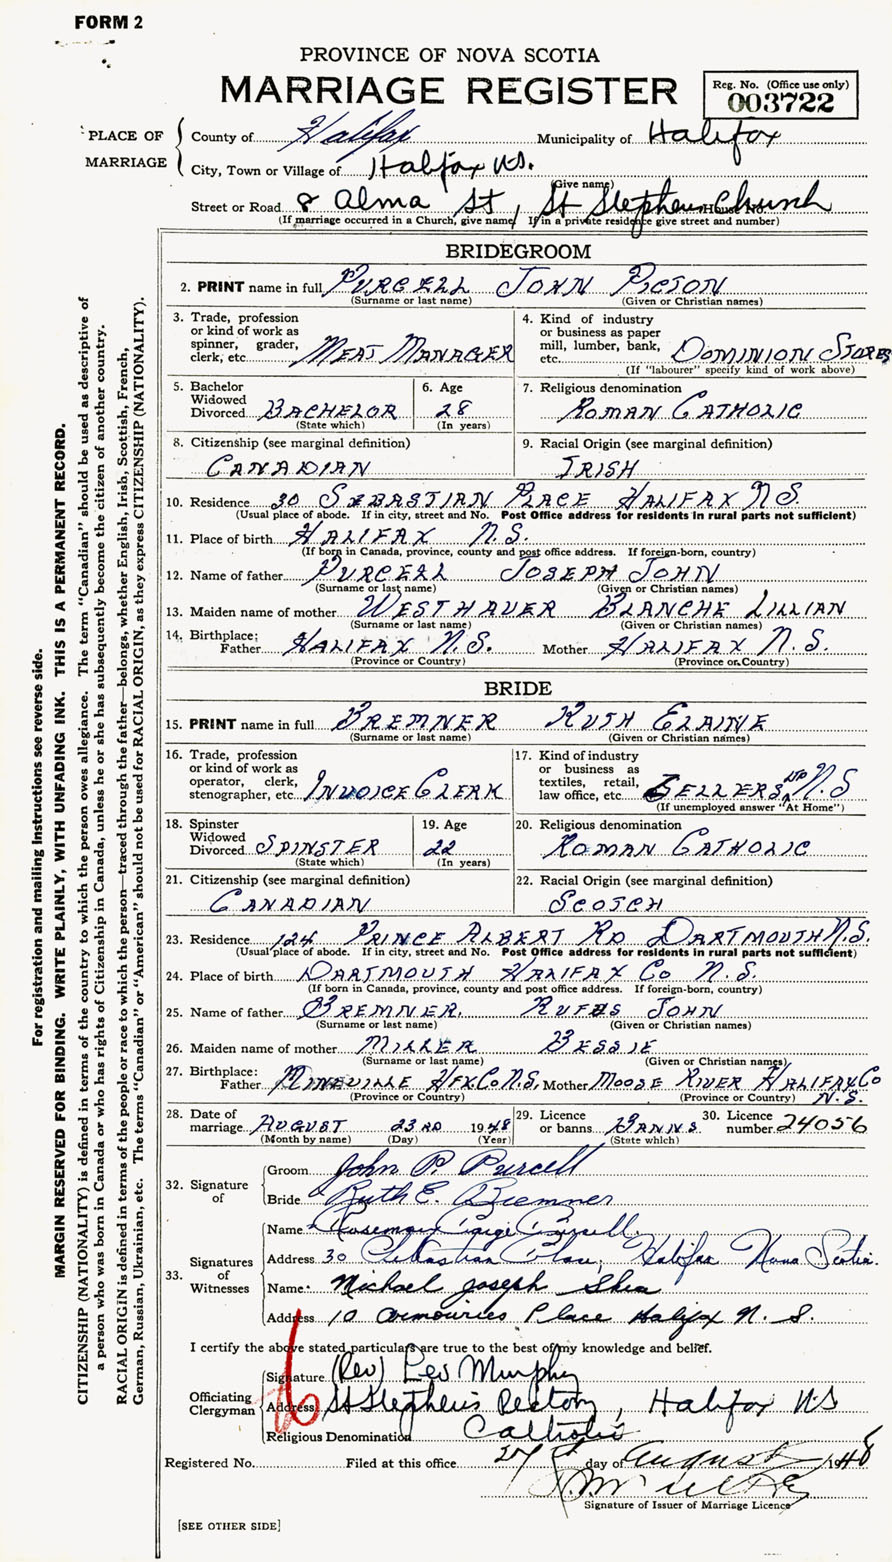 FORM 2
PROVINCE OF NOVA SCOTIA
MARRIAGE REGISTER
Reg. No. (Office use only)
003722
PLACE OF MARRIAGE
County of Halifax Municipality of Halifax
City, Town or Village of Halifax N.S.
(Give name)
Street or Road 8 Alma St, St Stephens Church House No.
(If marriage occurred in a Church, give name) If in a private residence give street and number)
BRIDEGROOM
2. PRINT name in full PURCELL JOHN PICTON
(Surname or last name) (Given or Christian names)
3. Trade, profession or kind of work as spinner, grader, clerk, etc. MEAT MANAGER
4. Kind of industry or business as paper mill, lumber, bank, etc. DOMINION STORES
(If "labourer" specify kind of work above)
5. Bachelor Widowed Divorced BACHELOR
(State which)
6. Age 28
(In years)
7. Religious denomination
ROMAN CATHOLIC
8. Citizenship (see marginal definition)
CANADIAN
9. Racial Origin (see marginal definition)
IRISH
10. Residence 30 SEBASTIAN PLACE HALIFAX N.S.
(Usual place of abode. If in city, street and No. Post Office address for residents in rural parts not sufficient)
11. Place of birth HALIFAX N.S.
(If born in Canada, province, county and post office address. If foreign-born, country)
12. Name of father PURCELL JOSEPH JOHN
(Surname or last name) (Given or Christian names)
13. Maiden name of mother WESTHAVER BLANCHE LILLIAN
(Surname or last name) (Given or Christian names)
14. Birthplace: Father HALIFAX N.S. Mother HALIFAX N.S.
(Province or Country) (Province or Country)
BRIDE
15. PRINT name in full BREMNER RUTH ELAINE
(Surname or last name) (Given or Christian names)
16. Trade, profession or kind of work as operator, clerk, stenographer, etc. INVOICE CLERK
17. Kind of industry or business as textiles, retail, law office, etc. SELLERS LTD N.S
(If unemployed answer "At Home")
18. Spinster Widowed Divorced SPINSTER
(State which)
19. Age 22
(In years)
20. Religious denomination
ROMAN CATHOLIC
21. Citizenship (see marginal definition)
CANADIAN
22. Racial Origin (see marginal definition)
SCOTCH
23. Residence 124 PRINCE ALBERT RD DARTMOUTH N.S.
(Usual place of abode. If in city, street and No. Post Office address for residents in rural parts not sufficient)
24. Place of birth DARTMOUTH HALIFAX CO N.S.
(If born in Canada, province, county and post office address. If foreign-born, country)
25. Name of father BREMNER RUFUS JOHN
(Surname or last name) (Given or Christian names)
26. Maiden name of mother MILLER BESSIE
(Surname or last name) (Given or Christian names)
27. Birthplace: Father MINEVILLE HFX CO N.S. Mother MOOSE RIVER HALIFAX CO N.S.
(Province or Country) (Province or Country)
28. Date of marriage AUGUST 23RD 1948
(Month by name) (Day) (Year)
29. Licence or banns BANNS
(State which)
30. Licence number 24056
32. Signature of
Groom John P. Purcell
Bride Ruth E. Bremner
33. Signatures of Witnesses
Name Rosemary Paige Purcell.
Address 30 Sebastian Place, Halifax Nova Scotia.
Name Michael Joseph Shea
Address 10 Armouries Place Halifax N. S.
I certify the above stated particulars are true to the best of my knowledge and belief.
Officiating Clergyman
Signature (Rev) Leo Murphy
Address St Stephen's Rectory, Halifax NS
Religious Denomination Catholic
Registered No. Filed at this office 27th day of August 1948
Signature of Issuer of Marriage Licence
[SEE OTHER SIDE]
For registration and mailing instructions see reverse side.
MARGIN RESERVED FOR BINDING. WRITE PLAINLY, WITH UNFADING INK. THIS IS A PERMANENT RECORD.
CITIZENSHIP (NATIONALITY) is defined in terms of the country to which the person owes allegiance. The term "Canadian" should be used as descriptive of
a person who was born in Canada or who has rights of Citizenship in Canada, unless he or she has subsequently become the citizen of another country.
RACIAL ORIGIN is defined in terms of the people or race to which the person—traced through the father—belongs, whether English, Irish, Scottish, French,
German, Russian, Ukrainian, etc. The terms "Canadian" or "American" should not be used for RACIAL ORIGIN, as they express CITIZENSHIP (NATIONALITY).